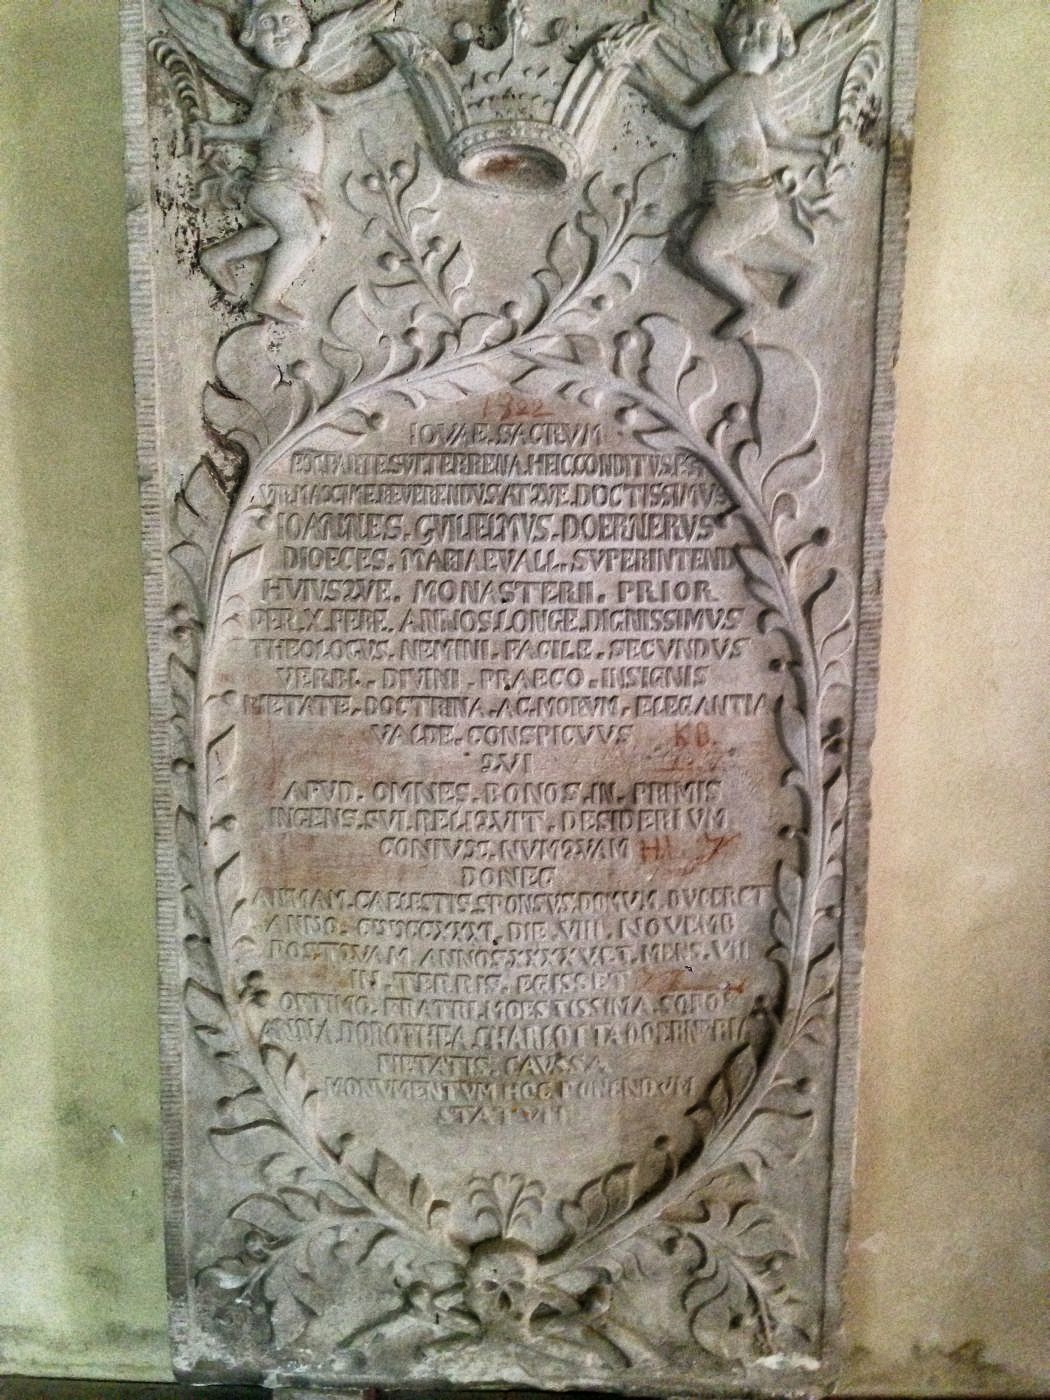 1922
IOVAE.SACRVM
EX.PARTE.SVI.TERRENA.HEIC.CONDITVS.EST
VIR.MAXIME.REVERENDVS.ATQVE.DOCTISSIMVS
IOANNES.GVILELMVS.DOERNERVS
DIOECES.MARIAEVALL.SVPERINTEND
HVIVSQVE.MONASTERII.PRIOR
PER.X.FERE.ANNOS.LONGE.DIGNISSIMVS
THEOLOGVS.NEMINI.FACILE.SECVNDVS
VERBI.DIVINI.PRAECO.INSIGNIS
PIETATE.DOCTRINA.AC.MORVM.ELEGANTIA
VALDE.CONSPICVVS
KB.
SVI
APVD.OMNES.BONOS.IN.PRIMIS
INGENS.SVI.RELIQVIT.DESIDERIVM
CONIVGEM.NVMQVAM
DONEC
ANIMAM.CAELESTIS.SPONSVS.DOMVM.DVCERET
DIE.VIII.NOVEMB
POSTQVAM.ANNOS.XXXXV.ET.MENS.VII
IN.TERRIS.EGISSET
OPTIMO.FRATRI.MOESTISSIMA.SOROR
ANNA.DOROTHEA.CHARLOTTA.DOERNERIA
PIETATIS.CAVSSA
MONVMENTVM.HOC.PONENDVM
STATVIT